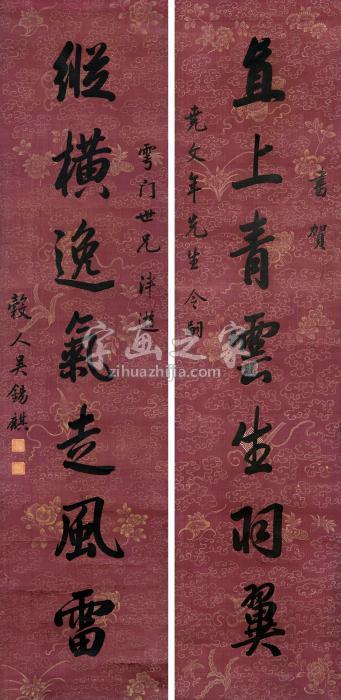 書賀
直上青雲生羽翼
堯文年先生令嗣
雩門世兄泮遊
縱橫逸氣走風雷
穀人吳錫麒
字画之家
zihuazhijia.com